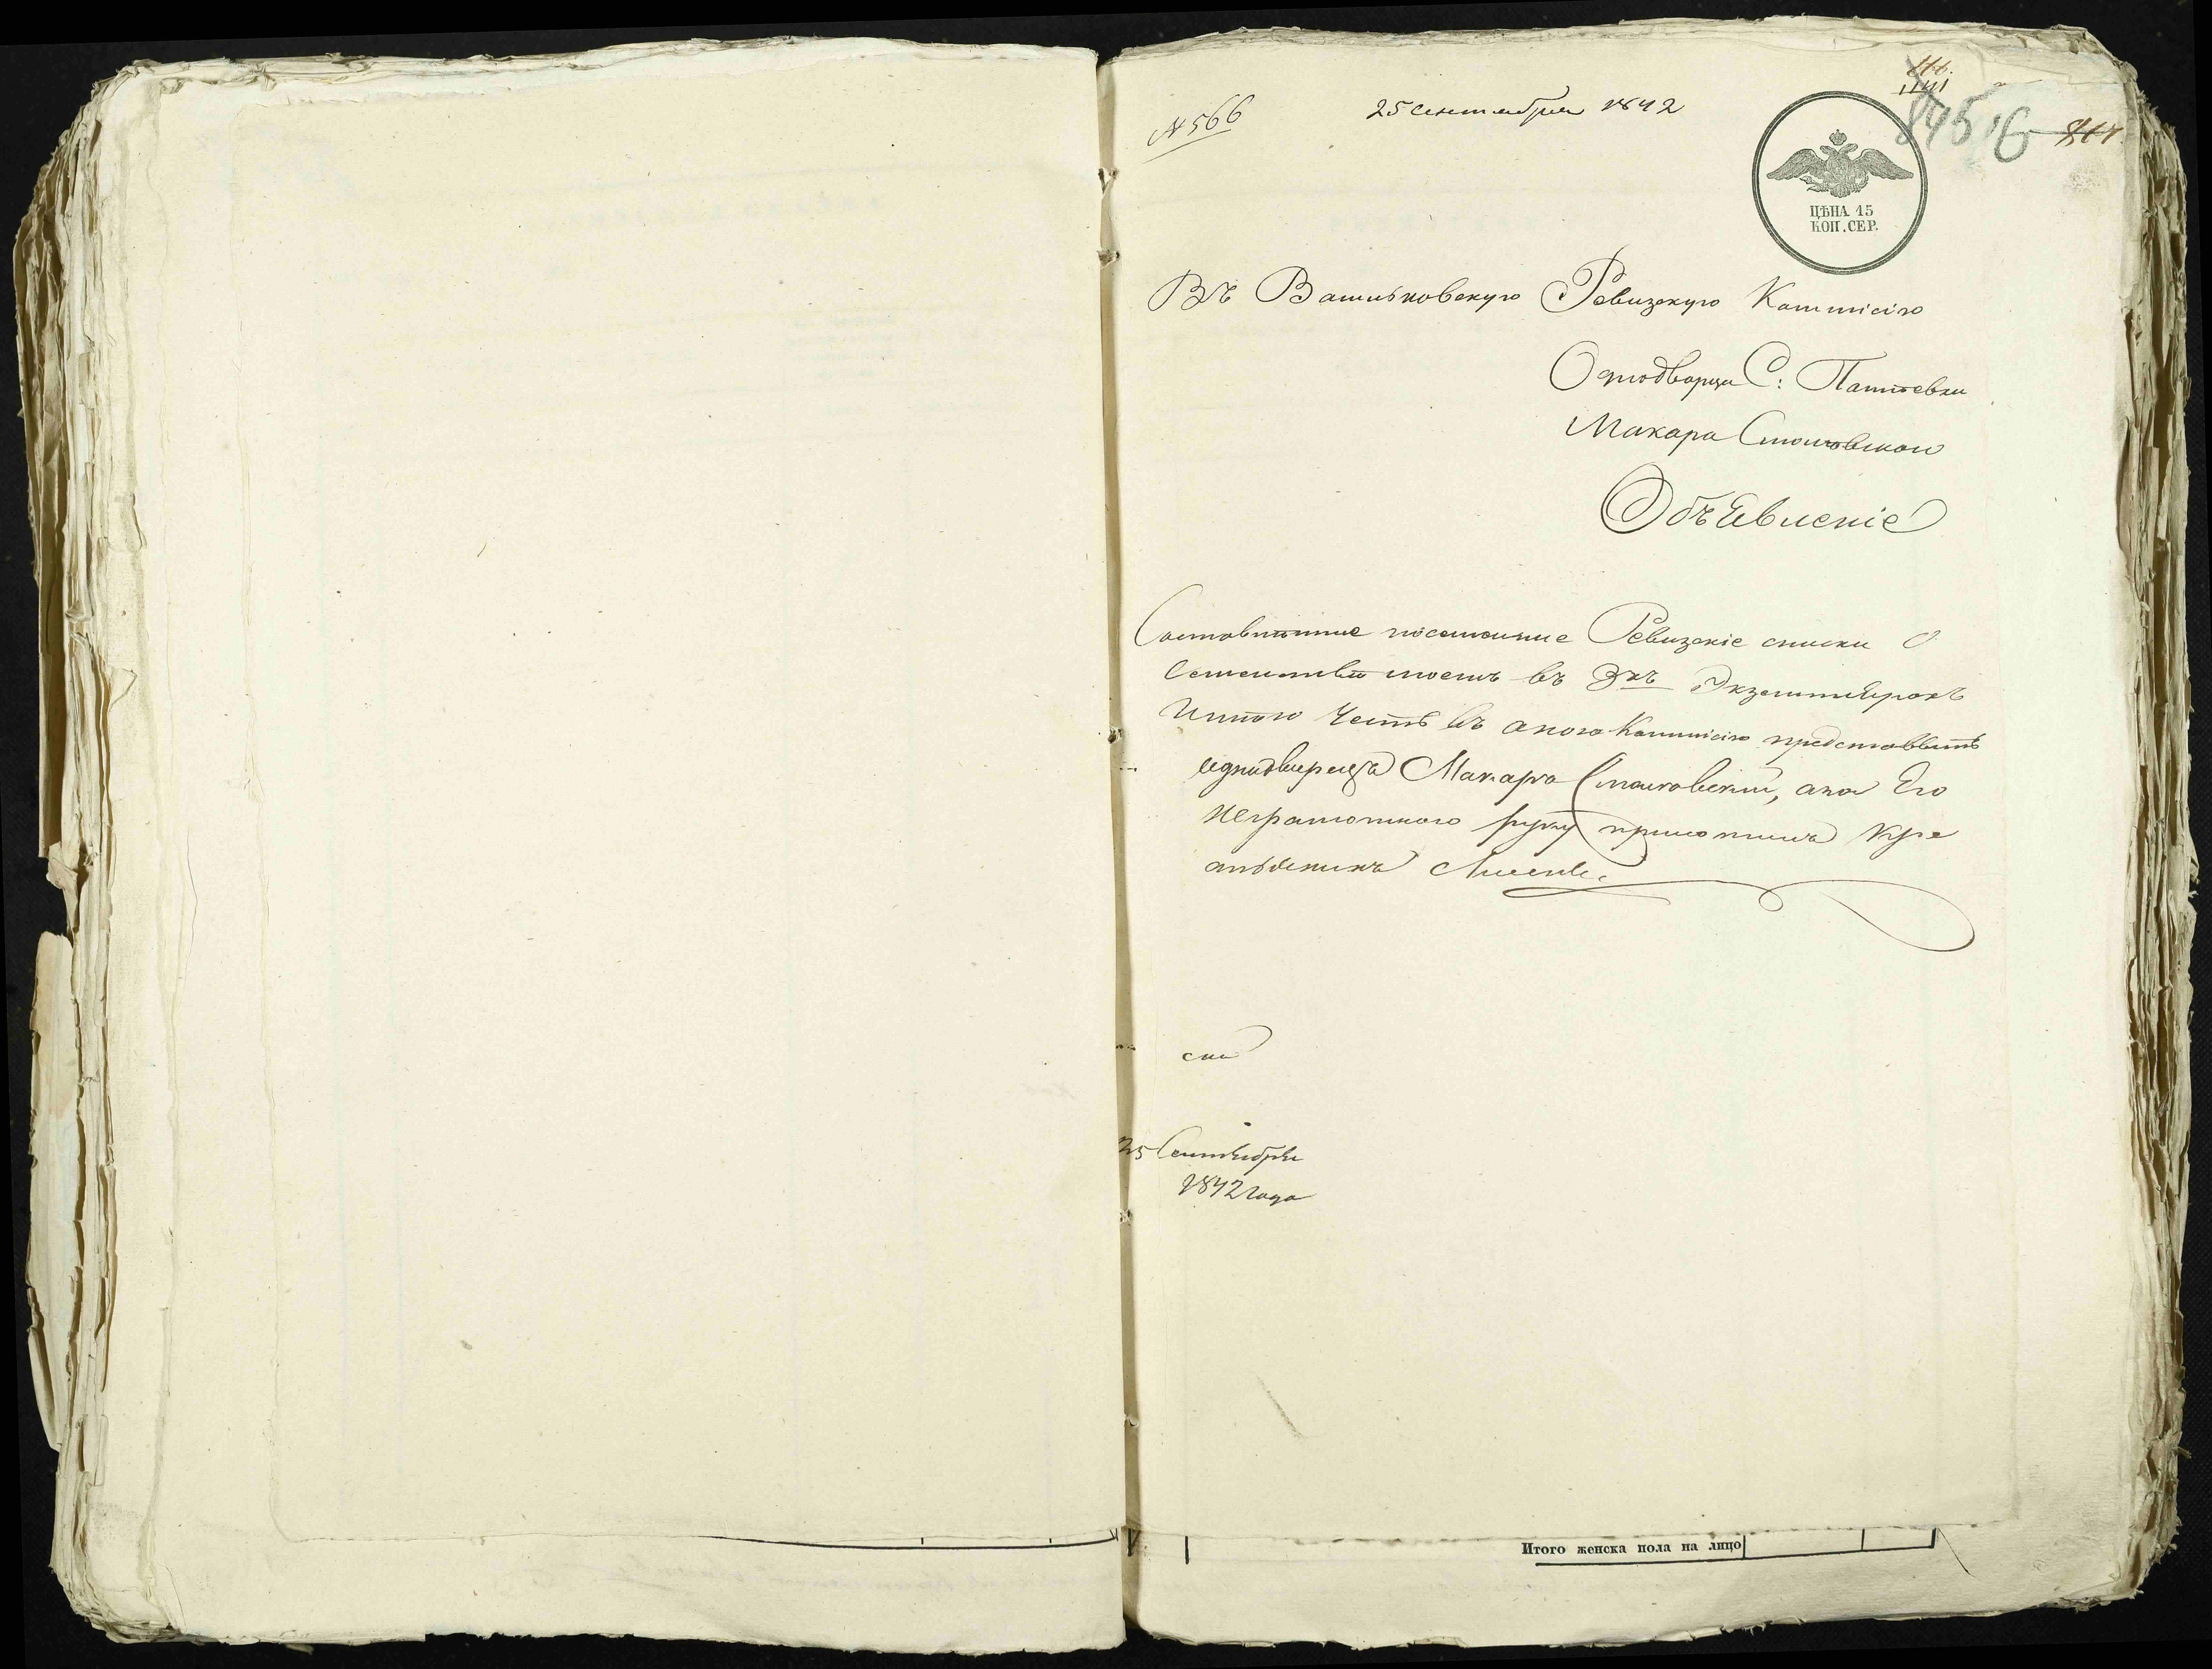 № 566
25 сентября 1842
845
6
ЦѢНА 15
КОП. СЕР.
Въ Васильковскую Ревизскую Коммисію
Однодворца С: Папіевки
Макара Стотовского
Объевленіе
Составленные посемейные Ревизскіе списки О
Семействѣ моемъ въ 3хъ Экземплярахъ
имѣю Честь въ оною Коммисію представить
однодворецъ Макаръ, ана Его
неграмотного руку приложилъ
25 Сентебря
1842 года
Итого женска пола на лицо